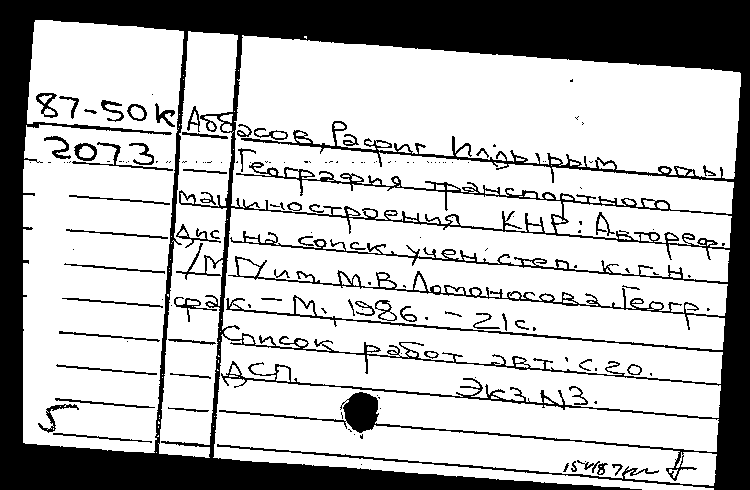 87-50к Аббасов, Рафиг Илдырым оглы
2073 География транспортного
машиностроения КНР: Автореф.
дис. на соиск. учен. степ. к.г.н.
/МГУ им. М.В. Ломоносова. Геогр.
фак. - М., 1986. - 21 с.
Список работ авт.: с. 20.
ДСП. Экз. N3.
5